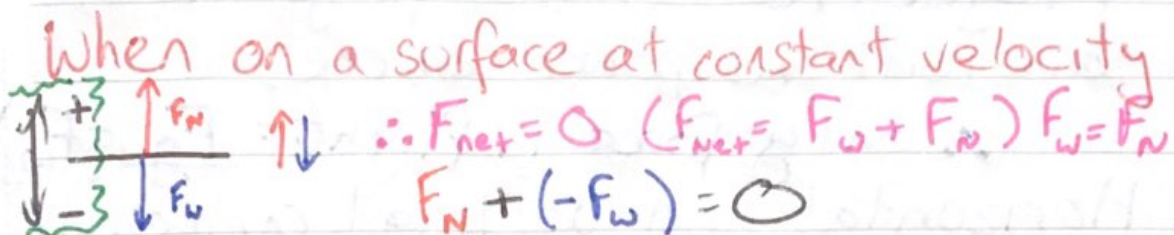 When on a surface at constant velocity
+ F_N ∴ F_net = 0 (F_Net = F_w + F_N) F_w = F_N
- F_w F_N + (-F_w) = 0